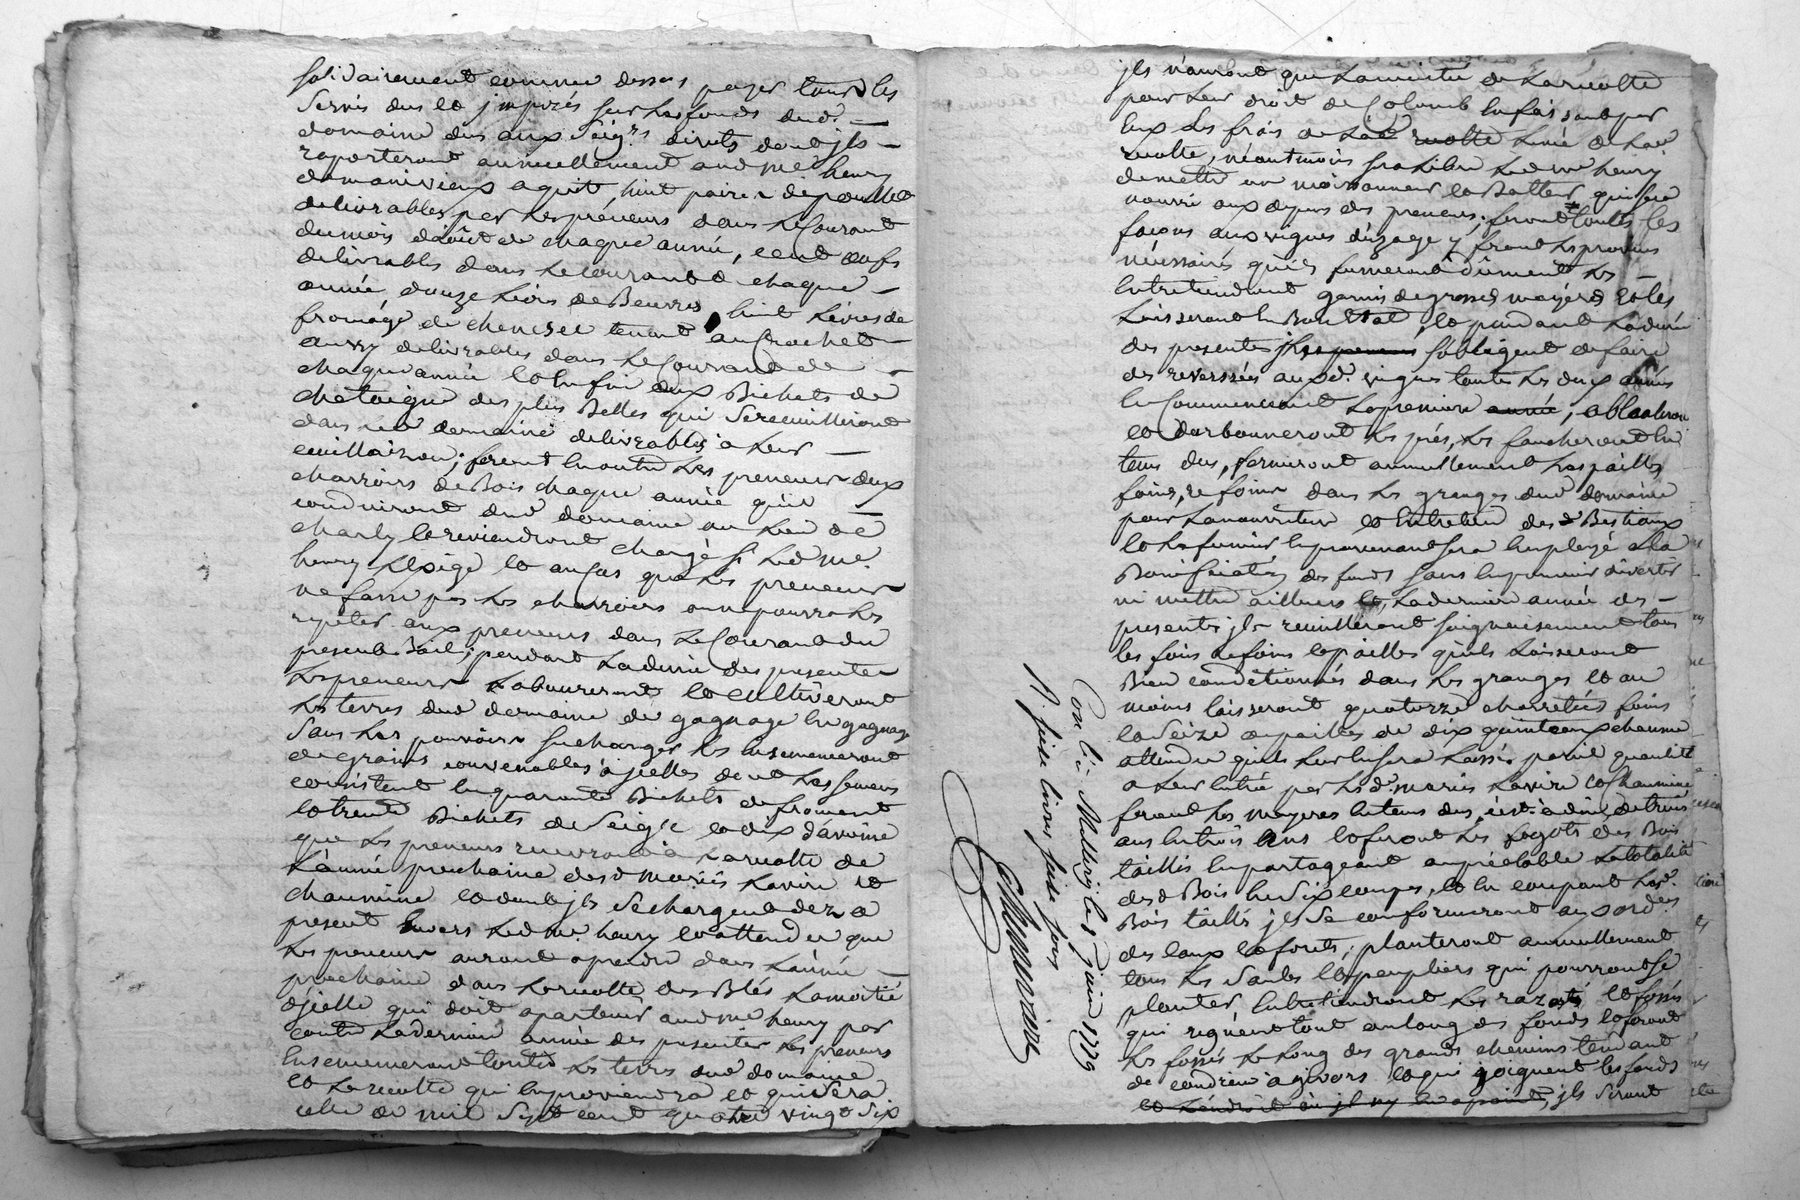 solidairement comme dessus payer tous les
servis dus et imposés sur les fonds dud.
domaine dus aux seigrs. directs dont jls
raporteront annuellement aud me henry
aquit huit paires de poullets
delivrables par les préneurs dans le Courant
du mois d'août de chaque année, cent œufs
delivrables dans le courant de chaque
année douze livres de Beurre, huit Livres de
fromage de tenant au Crochet
aussy delivrables dans le Courant de
chaque année et enfin deux Bichets de
chataigne des plus Belles qui se recuilliront
dans led domaine delivrables a leur
ceuillaison; feront en outre les preneurs deux
charrois de Bois chaque année qu'ils
conduiront dud domaine au lieu de
charly et reviendront chargé si led me.
henry l'exige et au Cas que les preneurs
ne fasse pas les charrois on ne pourra les
repeter aux preneurs dans le Courant du
present Bail; pendant la durée des presentes
les preneurs laboureront et cultiveront
les terres dud domaine de gagnage en gagnage
sans les pouvoir surcharger les ensemenceront
de grains convenables à jcelles dont les semences
consistent en quarante Bichets de froment
et trente Bichets de seigle et dix d'avoine
que les preneurs recevront à la recolte de
l'année prochaine desd mariés Lavire et
chaumine et dont jls se chargent dez a
present envers led me. henry et attendu que
les preneurs auront a prendre dans l'année
prochaine dans la recolte des Blés la moitié
d'jcelle qui doit apartenir aud me henry par
contre la derniere année des presentes les preneurs
ensemenceront toutes les terres dud domaine
et la recolte qui en proviendra et qui sera
celle de mil sept cent quatre vingt six
jls n'auront que la moitié de la recolte
pour leur droit de Colomb en faisant par
eux les frais de lad recolte
recolte, néantmoins sera libre led me henry
de mettre un moissonneur et Batteur qui sera
nourri aux depens des preneurs; feront toutes les
façons aux vignes d'uzage y feront les provins
nécessaires qu'ils fumeront dûment les
entretiendront garnis de grosses mayeres et les
laisseront en Bon Etat, et pendant la durée
des presentes s'obligent de faire
des reversées auxd. vignes toutes les deux années
en Commencant la premiere année,
et darbonneront les prés, les faucheront en
tems dus, fermeront annuellement les pailles
foins, refoins dans les granges dud domaine
pour la nourriture et entretien desd Bestiaux
et les fumiers en provenant sera employé a la
Bonification des fonds sans en pouvoir divertir
ni mettre ailleurs et, la derniere année des
presentes jls recuilleront soigneusement tous
les foins refoins et pailles qu'ils laisseront
Bien conditionnés dans les granges et au
moins laisseront quatorze charretées foins
et seize de pailles de dix quinteaux chacune
attendu qu'ils leur en sera laissé pareil quantité
a leur entrée par lesd. mariés Lavire et chaumine
feront les mayeres en tems dus, c'est à dire de trois
ans en trois ans et feront les fagots des Bois
taillis en partageant au préalable la totalité
desd Bois en six coupes, et en coupant lesd.
Bois taillis jls se conformeront aux ordces
des eaux et forets; planteront annuellement
tous les saules et peupliers qui pourront se
planter, entretiendront les razes et fossés
qui regnent tout au long des fonds et feront
les fossés le long des grands chemins tendant
de condrieu a givors et qui joignent les fonds
et l'endroit où jl n'y en a point, jls seront
Con. le à Millery le 8 juin 1779
R. sept livres seize sous